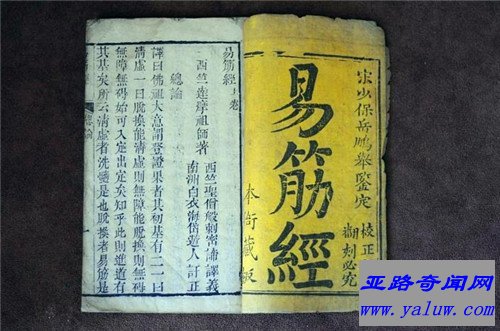 宋少保岳鵬舉鑒定
校正
翻刻必究
易筋經
本衙藏板
易筋經上卷
西竺達摩祖師著
西竺聖僧般刺密諦譯義
南洲白衣海岱遊人訂正
總論
譯曰佛祖大意謂登證果者其初基有二一曰
清虛一曰脫換能清虛則無障能脫換則無碍
無障無碍始可入定出定矣知乎此則進道有
其基矣所云清虛者洗髓是也脫換者易筋是
總論
亚路奇闻网
www.yaluw.com